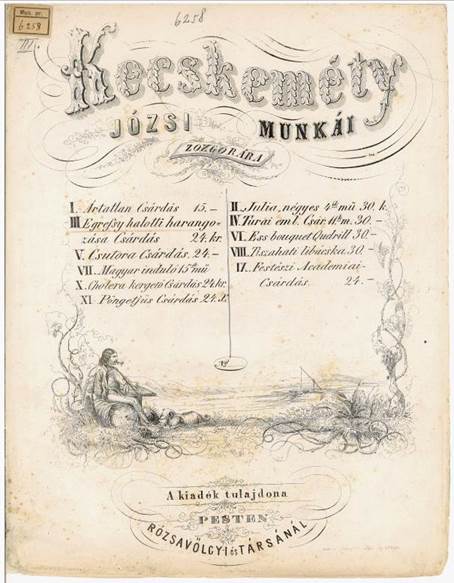 6258
Kecskeméty
JÓZSI MUNKÁI
ZOZGORÁRA
I. Ártatlan Csárdás 15.–
III. Egressy halotti harango-
zása Csárdás 24.kr.
V. Csutora Csárdás. 24.–
VII. Magyar induló 15 mü
X. Cholera kergető Csárdás 24 kr.
XI. Pöngetjüs Csárdás 24.
II. Julia, négyes 4es mü 30. k.
IV. Túrai eml. Csár. 11ik m. 30.–
VI. Ess bouquet Quadrill 30.–
VIII. Tiszaháti libácska 30.–
IX. Festészi Academiai-
Csárdás. 24.–
A kiadók tulajdona
PESTEN
RÓZSAVÖLGYI és TÁRSANÁL